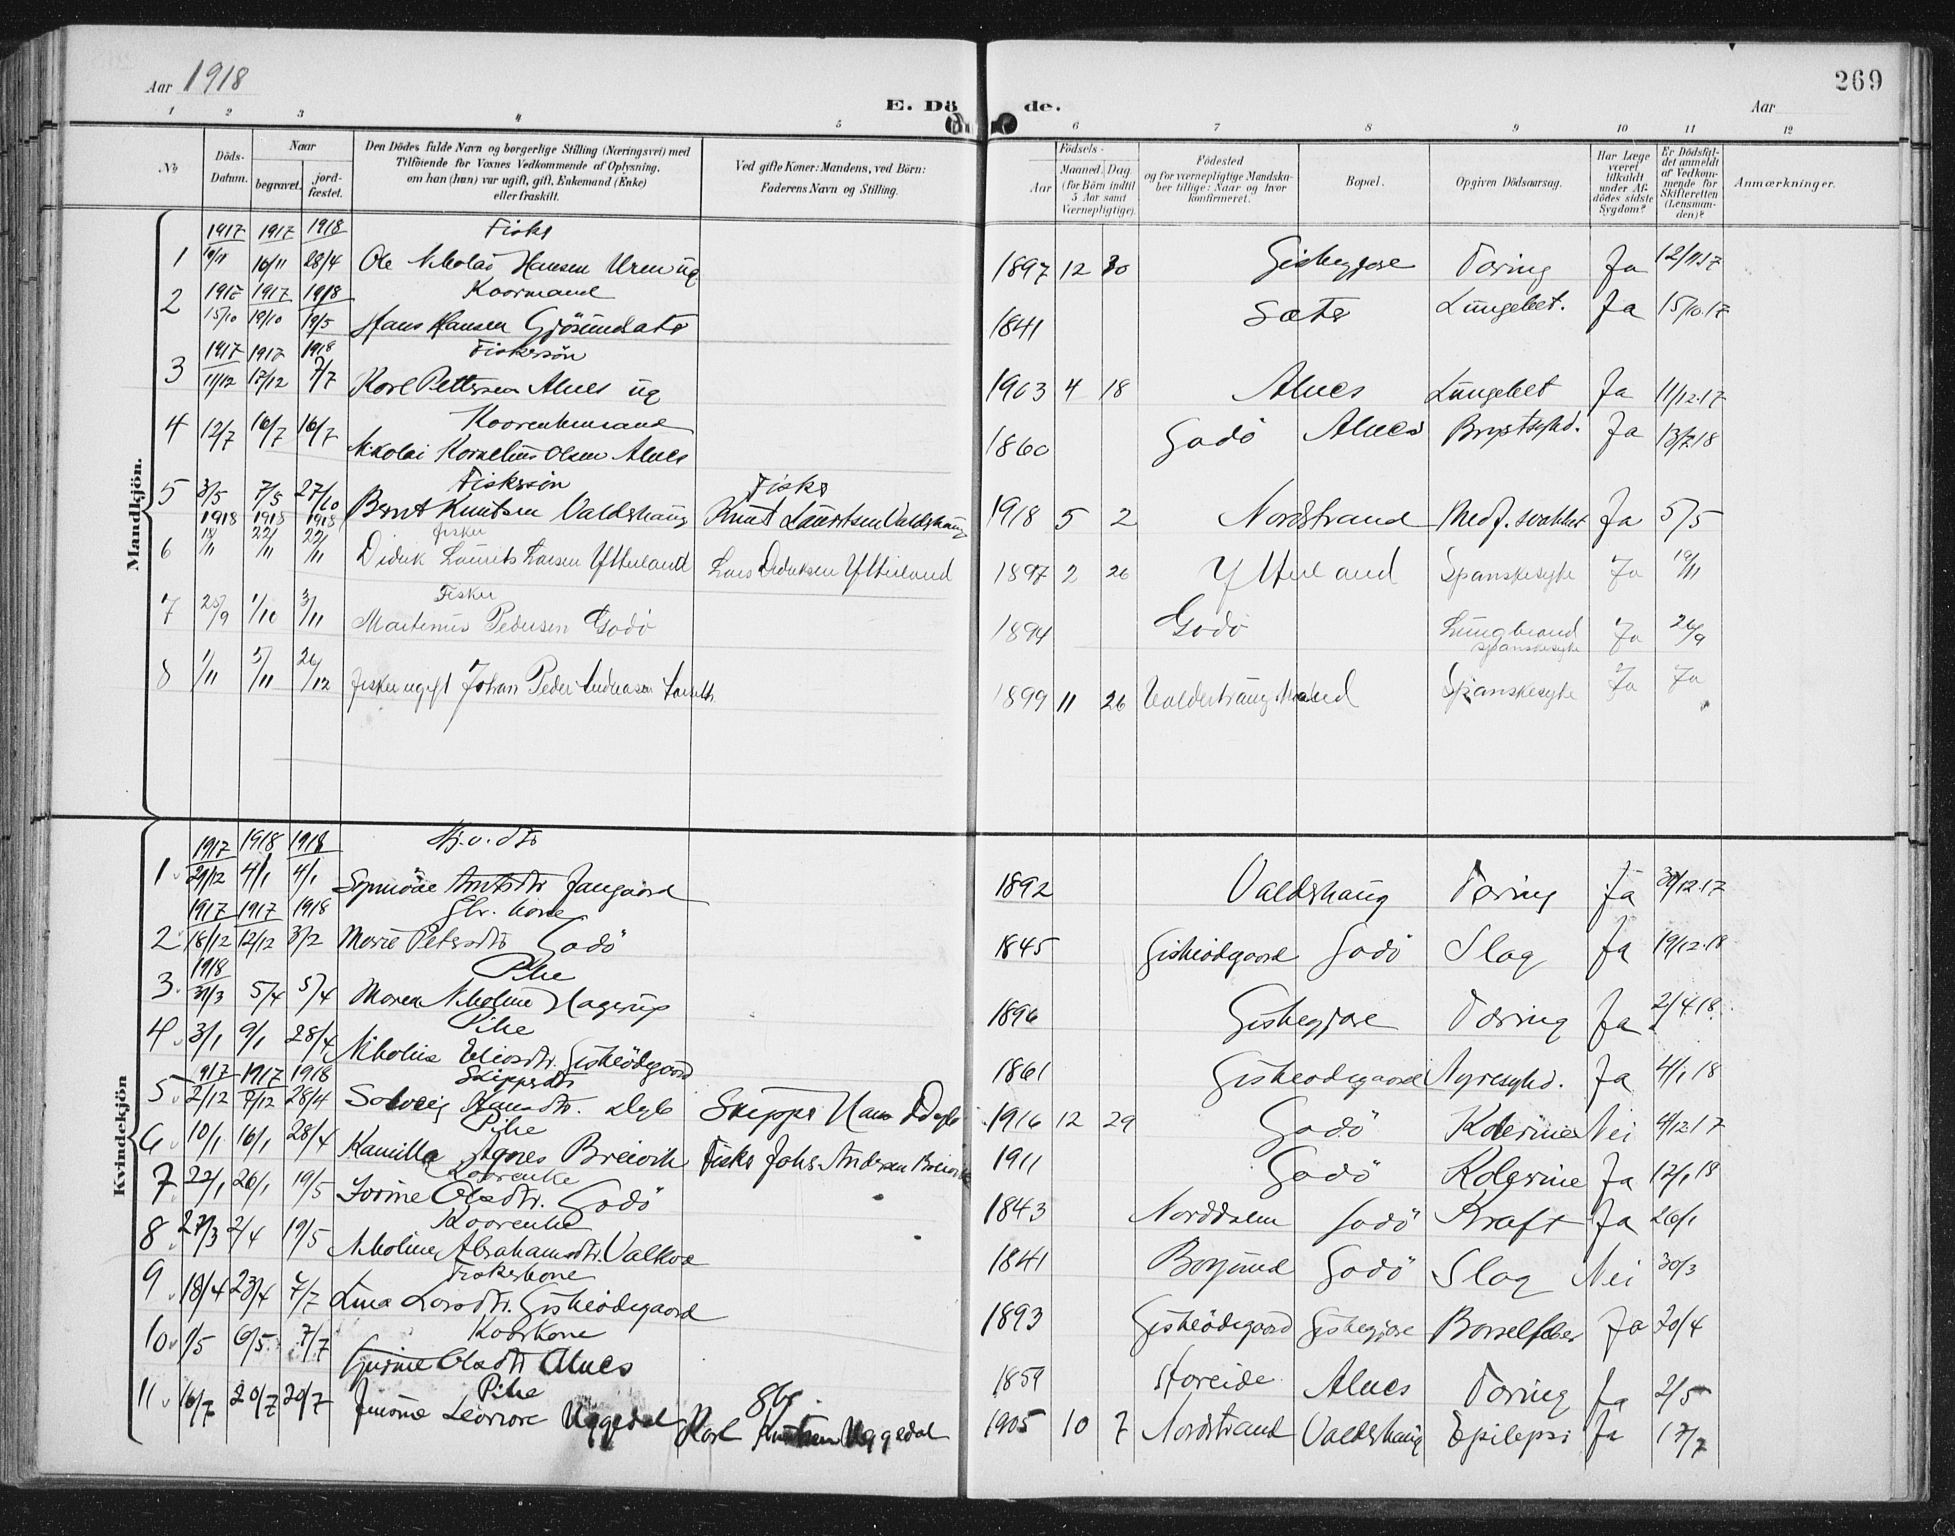 Aar 1918
269
E. Dö de.
Aar
1 2 3 4 5 6 7 8 9 10 11 12
No
Döds-Datum.
Naar
begravet.
jord-fæstet.
Den Dödes fulde Navn og borgerlige Stilling (Næringsvei) med
Tilföiende for Voxnes Vedkommende af Oplysning,
om han (hun) var ugift, gift, Enkemand (Enke)
eller fraskilt.
Ved gifte Koner: Mandens, ved Börn:
Faderens Navn og Stilling.
Födsels-
Aar
Maaned. Dag.
(for Börn indtil
5 Aar samt
Værnepligtige)
Födested
og for værnepligtige Mandska-
ber tillige: Naar og hvor
konfirmeret.
Bopæl.
Opgiven Dödsaarsag.
Har Læge
været
tilkaldt
under Af-
dödes sidste
Sygdom?
Er Dödsfal-
det anmeldt
af Vedkom-
mende for
Skifteretten
(Lensman-
den)?
Anmærkninger.
Mandkjön.
1917 1917 1918 Fisker
1 16/11 28/4 Ole Nikolai Hansen Uren ug 1897 12 30 Giskegjøre Tæring Ja 12/11.17
1917 1917 1918 Kaarmand
2 15/10 19/10 19/5 Hans Hansen 1841 Sæter Lungebet. Ja 15/10.17
1917 1917 1918 Fiskersøn
3 11/12 17/12 7/7 Karl Pettersen Alnes ug 1903 4 18 Alnes Lungebet Ja 11/12.17
4 12/7 16/7 16/7 Nikolai Kornelius Olsen Alnes 1860 Godö Alnes Brystsykd. Ja 13/7.18
Fiskersøn Fisker
5 3/5 7/5 27/10 Bernt Knutsen Valdshaug Knut Lauritsen Valdshaug 1918 5 2 Nordstrand Medf. svakhet Ja 5/5
1918 1918 1918 Fisker
6 18/11 22/11 22/11 Didrik Laurits Larsen Ytterland Lars Didriksen Ytterland 1897 2 26 Ytterland Spanskesyke Ja 19/11
Fisker
7 25/9 1/10 3/11 Martinus Pedersen Godö 1894 Godö Lungbrand spanskesyke Ja 26/9
8 1/11 5/11 26/12 Fisker ugift Johan Peder Andreasen 1899 11 26 Spanskesyke Ja Ja
Kvindekjön
1917 1918 1918
1 29/12 4/1 4/1 Jangaard 1892 Valdshaug Tæring Ja 30/12.17
1917 1917 1918 Gbr. kone
2 18/12 12/12 3/2 Marie Petersdtr Godö 1845 Giskeödegaard Godö Slag Ja 19/12.18
1918 Pike
3 31/3 5/4 5/4 Maren Nikoline Hagerup 1896 Giskegjøre Tæring Ja 2/4.18
Pike
4 3/1 9/1 28/4 Nikoline Eliasdtr. Giskeödegaard 1861 Giskeödegaard Nyresykd. Ja 4/1 18
917 1917 1918 Skippsdtr
5 2/12 7/12 28/4 Solveig Hansdtr. Skipper Hans 1916 12 29 Godö Kolerine Nei 4/12.17
Pike
6 10/1 16/1 28/4 Kamilla Agnes Breivik Fisker Johs Andersen Breivik 1911 Godö Kolerine Ja 12/1 18
Kaarenke
7 22/1 26/1 19/5 Olsdtr. Godö 1843 Norddalen Godö Kraft Ja 26/1
Kaarenke
8 27/3 2/4 19/5 Nikoline Abrahamsdtr. Valkvæ 1841 Borgund Godö Slag Nei 30/3
Fiskerkone
9 18/4 23/4 7/7 Lina Larsdtr. Giskeödegaard 1893 Giskeödegaard Giskegjøre Barselfeber Ja 20/4
Kaarkone
10 1/5 6/5 7/7 Olsdtr Alnes 1859 Storeide Alnes Tæring Ja 2/5
Pike Gbr.
11 16/7 20/7 20/7 Leonore Uggedal Karl Knutsen Uggedal 1905 10 7 Nordstrand Valdshaug Epilepsi Ja 17/7